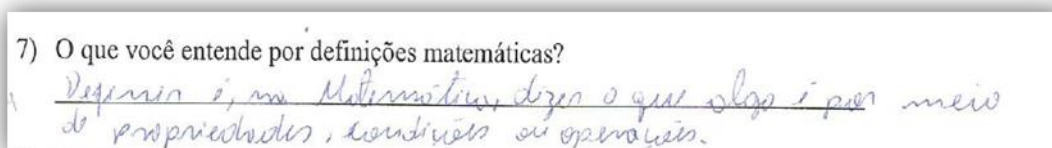 7) O que você entende por definições matemáticas?
Definir é, na Matemática, dizer o que algo é por meio
de propriedades, condições ou operações.